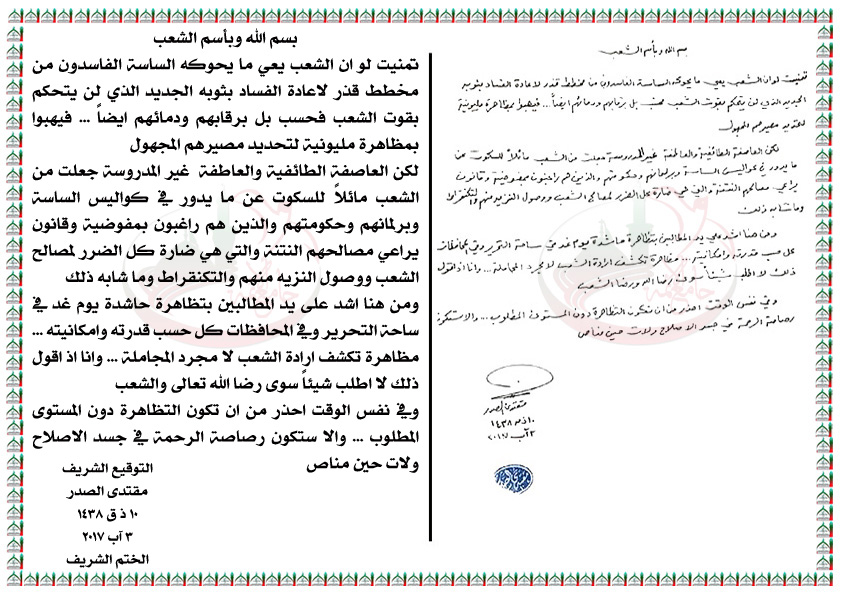 بسم الله وبأسم الشعب
تمنيت لو ان الشعب يعي ما يحوكه الساسة الفاسدون من
مخطط قذر لاعادة الفساد بثوبه الجديد الذي لن يتحكم
بقوت الشعب فحسب بل برقابهم ودمائهم ايضاً ... فيهبوا
بمظاهرة مليونية لتحديد مصيرهم المجهول
لكن العاصفة الطائفية والعاطفة غير المدروسة جعلت من
الشعب مائلاً للسكوت عن ما يدور في كواليس الساسة
وبرلمانهم وحكومتهم والذين هم راغبون بمفوضية وقانون
يراعي مصالحهم النتنة والتي هي ضارة كل الضرر لمصالح
الشعب ووصول النزيه منهم والتكنقراط وما شابه ذلك
ومن هنا اشد على يد المطالبين بتظاهرة حاشدة يوم غد في
ساحة التحرير وفي المحافظات كل حسب قدرته وامكانيته ...
مظاهرة تكشف ارادة الشعب لا مجرد المجاملة ... وانا اذ اقول
ذلك لا اطلب شيئاً سوى رضا الله تعالى والشعب
وفي نفس الوقت احذر من ان تكون التظاهرة دون المستوى
المطلوب ... والا ستكون رصاصة الرحمة في جسد الاصلاح
ولات حين مناص
التوقيع الشريف
مقتدى الصدر
١٠ ذ ق ١٤٣٨
٣ آب ٢٠١٧
الختم الشريف
بسم الله وبأسم الشعب
تمنيت لو ان الشعب يعي ما يحوكه الساسة الفاسدون من مخطط قذر لاعادة الفساد بثوبه
الجديد الذي لن يتحكم بقوت الشعب فحسب بل برقابهم ودمائهم ايضاً ... فيهبوا بمظاهرة مليونية
لتحديد مصيرهم المجهول
لكن العاصفة الطائفية والعاطفة غير المدروسة جعلت من الشعب مائلاً للسكوت عن
ما يدور في كواليس الساسة وبرلمانهم وحكومتهم والذين هم راغبون بمفوضية وقانون
يراعي مصالحهم النتنة والتي هي ضارة كل الضرر لمصالح الشعب ووصول النزيه منهم والتكنقراط
وما شابه ذلك
ومن هنا اشد على يد المطالبين بتظاهرة حاشدة يوم غد في ساحة التحرير وفي المحافظات
كل حسب قدرته وامكانيته ... مظاهرة تكشف ارادة الشعب لا مجرد المجاملة ... وانا اذ اقول
ذلك لا اطلب شيئاً سوى رضا الله ورضا الشعب
وفي نفس الوقت احذر من ان تكون التظاهرة دون المستوى المطلوب ... والا ستكون
رصاصة الرحمة في جسد الاصلاح ولات حين مناص
مقتدى الصدر
١٠ ذ ق ١٤٣٨
٣ آب ٢٠١٧